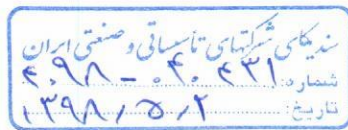 سندیکای شرکتهای تأسیساتی و صنعتی ایران
شماره: ۴۰۹۸ - ۰۴۰۴۳۱
تاریخ: ۱۳۹۸/۵/۲